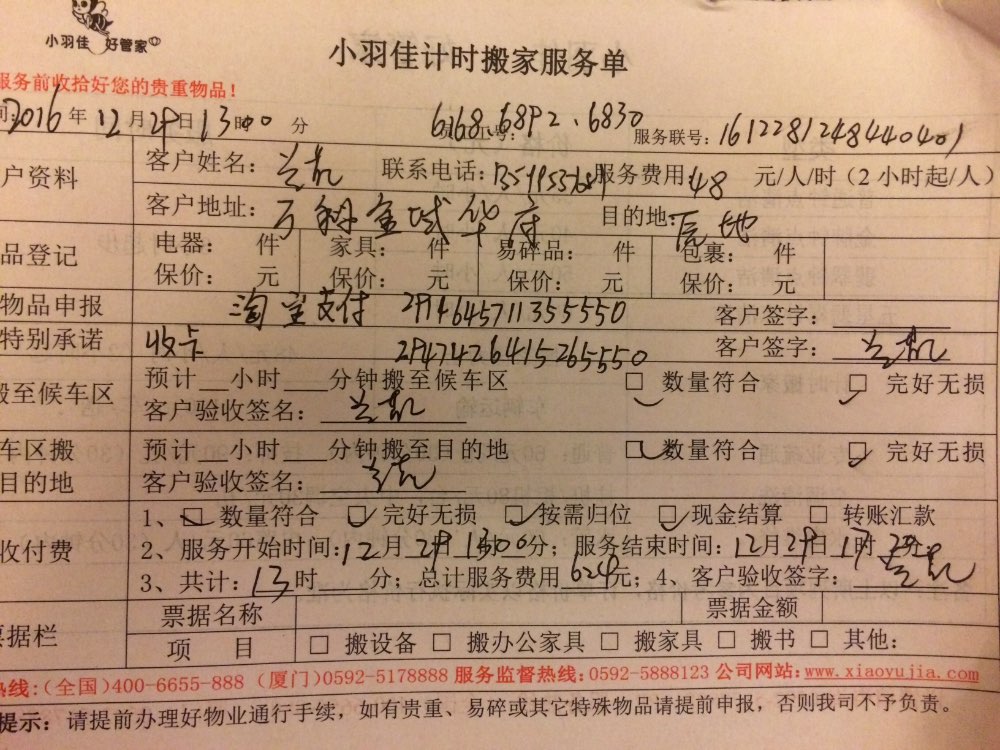 小羽佳 好管家
小羽佳计时搬家服务单
服务前收拾好您的贵重物品!
2016年12月29日13时00分 6168.6892.6830 服务联号: 1612281248440401
户资料 客户姓名: 兰凯 联系电话: 服务费用: 48 元/人/时(2小时起/人)
客户地址: 万科金域华府 目的地: 原地
品登记 电器: 件 家具: 件 易碎品: 件 包裹: 件
保价: 元 保价: 元 保价: 元 保价: 元
物品申报 淘宝支付 2914645711355550 客户签字:
特别承诺 收卡 2947426415265550 客户签字: 兰凯
搬至候车区 预计 小时 分钟搬至候车区 □ 数量符合 □ 完好无损
客户验收签名: 兰凯
车区搬 预计 小时 分钟搬至目的地 □ 数量符合 □ 完好无损
目的地 客户验收签名: 兰凯
1、□ 数量符合 □ 完好无损 □ 按需归位 □ 现金结算 □ 转账汇款
收付费 2、服务开始时间: 12月29日13时00分; 服务结束时间: 12月29日17时20分;
3、共计: 13时 分; 总计服务费用624元; 4、客户验收签字: 兰凯
票据栏 票据名称 票据金额
项 目 □ 搬设备 □ 搬办公家具 □ 搬家具 □ 搬书 □ 其他:
热线:(全国)400-6655-888 (厦门)0592-5178888 服务监督热线: 0592-5888123 公司网站: www.xiaoyujia.com
提示: 请提前办理好物业通行手续, 如有贵重、易碎或其它特殊物品请提前申报, 否则我司不予负责。